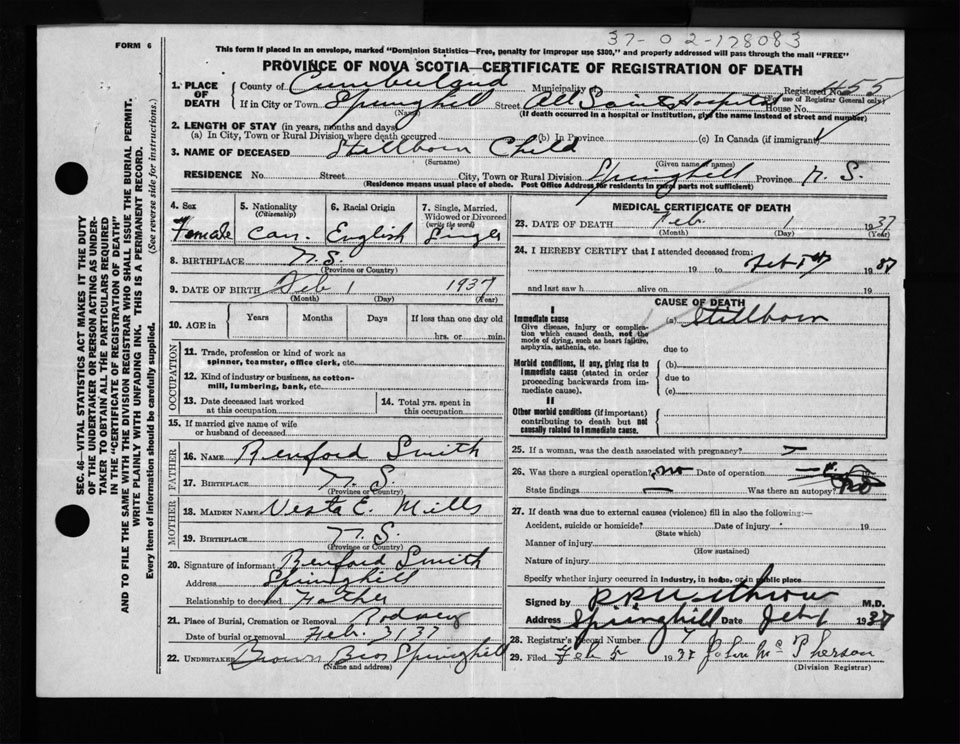 37-02-178083
FORM 6
This form if placed in an envelope, marked "Dominion Statistics—Free, penalty for improper use $300," and properly addressed will pass through the mail "FREE"
PROVINCE OF NOVA SCOTIA—CERTIFICATE OF REGISTRATION OF DEATH
1. PLACE OF DEATH
County of Cumberland Municipality Registered No. 455
(use of Registrar General only)
If in City or Town Springhill Street All Saints Hospital House No.
(Name) (If death occurred in a hospital or institution, give the name instead of street and number)
2. LENGTH OF STAY (in years, months and days)
(a) In City, Town or Rural Division where death occurred (b) In Province (c) In Canada (if immigrant)
3. NAME OF DECEASED Stillborn Child
(Surname) (Given name or names)
RESIDENCE No. Street City, Town or Rural Division Springhill Province N. S.
(Residence means usual place of abode. Post Office Address for residents in rural parts not sufficient)
4. Sex Female
5. Nationality (Citizenship) Can.
6. Racial Origin English
7. Single, Married, Widowed or Divorced (write the word) Single
8. BIRTHPLACE N.S.
(Province or Country)
9. DATE OF BIRTH Feb 1 1937
(Month) (Day) (Year)
10. AGE in Years Months Days If less than one day old
hrs. or min.
OCCUPATION
11. Trade, profession or kind of work as spinner, teamster, office clerk, etc.
12. Kind of industry or business, as cotton-mill, lumbering, bank, etc.
13. Date deceased last worked at this occupation
14. Total yrs. spent in this occupation
15. If married give name of wife or husband of deceased
FATHER
16. NAME Renford Smith
17. BIRTHPLACE N. S.
(Province or Country)
MOTHER
18. MAIDEN NAME Vesta E. Mills
19. BIRTHPLACE N. S.
(Province or Country)
20. Signature of informant Renford Smith
Address Springhill
Relationship to deceased Father
21. Place of Burial, Cremation or Removal Rodney
Date of burial or removal Feb. 3 1937
22. UNDERTAKER Brown Bros Springhill
(Name and address)
MEDICAL CERTIFICATE OF DEATH
23. DATE OF DEATH Feb. 1 1937
(Month) (Day) (Year)
24. I HEREBY CERTIFY that I attended deceased from:
19 to Feb 1st 1937
and last saw h alive on 19
CAUSE OF DEATH
I
Immediate cause (a) Stillborn
Give disease, injury or complication which caused death, not the mode of dying, such as heart failure, asphyxia, asthenia, etc.
due to
Morbid conditions, if any, giving rise to immediate cause (stated in order proceeding backwards from immediate cause).
(b)
due to
(c)
II
Other morbid conditions (if important) contributing to death but not causally related to immediate cause.
25. If a woman, was the death associated with pregnancy?
26. Was there a surgical operation? no Date of operation
State findings — Was there an autopsy? no
27. If death was due to external causes (violence) fill in also the following:—
Accident, suicide or homicide? Date of injury 19
(State which)
Manner of injury
(How sustained)
Nature of injury
Specify whether injury occurred in industry, in home, or in public place
Signed by M.D.
Address Springhill Date Feb 1 1937
28. Registrar's Record Number 7
29. Filed Feb 5 1937 John McPherson
(Division Registrar)
SEC. 46—VITAL STATISTICS ACT MAKES IT THE DUTY
OF THE UNDERTAKER OR PERSON ACTING AS UNDERTAKER TO OBTAIN ALL THE PARTICULARS REQUIRED
IN THE "CERTIFICATE OF REGISTRATION OF DEATH"
AND TO FILE THE SAME WITH THE DIVISION REGISTRAR WHO SHALL ISSUE THE BURIAL PERMIT.
WRITE PLAINLY WITH UNFADING INK. THIS IS A PERMANENT RECORD.
Every item of information should be carefully supplied. (See reverse side for instructions.)